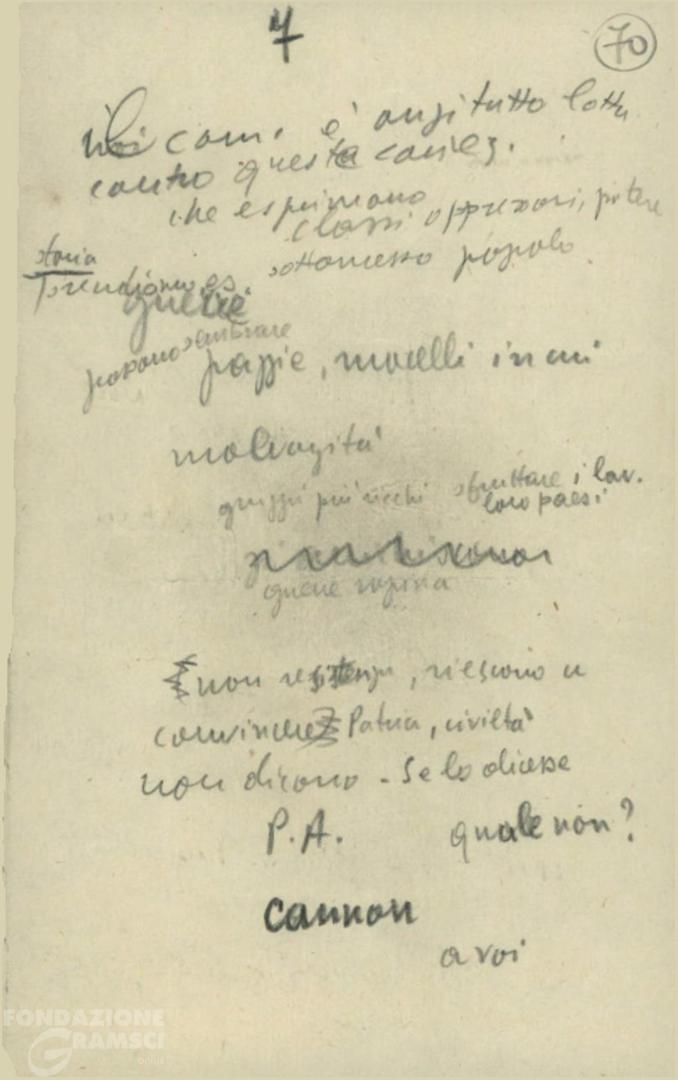 7
70
Noi com. è anzitutto lotta
contro questa concez.
che esprimono
classi oppressori, potere
storia
sottomesso popolo
Prendiamo es.
guerre
possono sembrare
pazzie, macelli inani
malvagità
gruppi più ricchi sfruttare i lav.
loro paesi
guerre rapina
non, riescono a
convincere Patria, civiltà
non dicono - Se lo dicesse
P.A. quale non?
cannon
a voi
FONDAZIONE
GRAMSCI
onlus